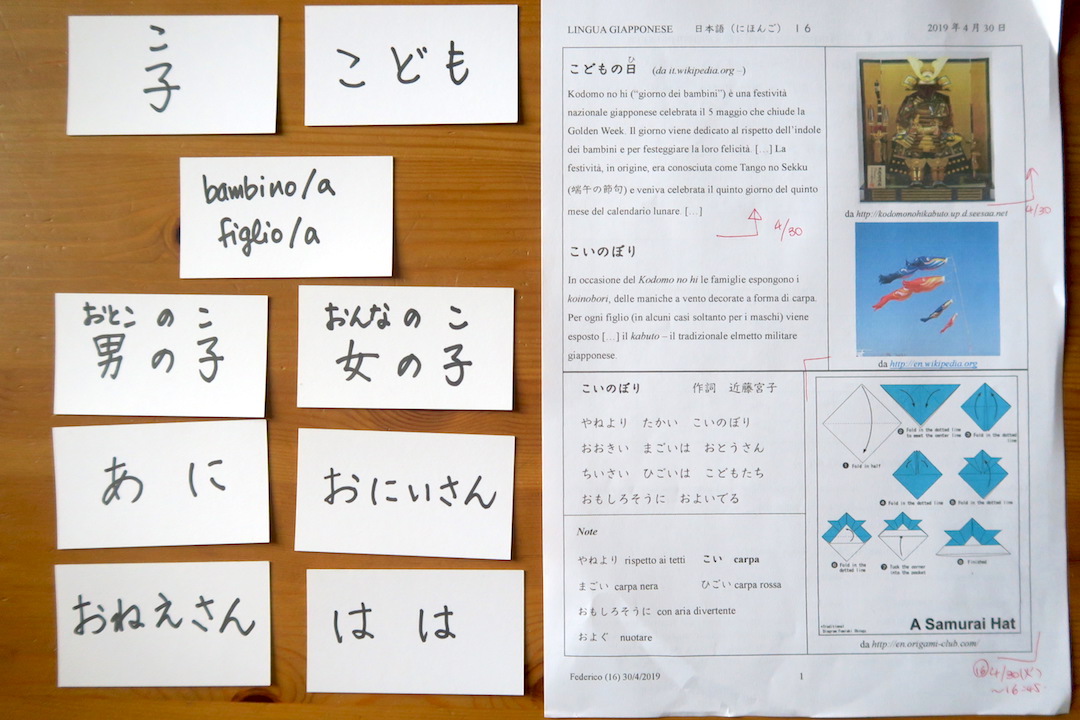 こ
子
こども
bambino/a
figlio/a
おとこ の こ
男 の 子
おんな の こ
女 の 子
あ に
おにいさん
おねえさん
は は
LINGUA GIAPPONESE 日本語（にほんご） 16 2019年4月30日
ひ
こどもの日 (da it.wikipedia.org –)
Kodomo no hi (“giorno dei bambini”) è una festività
nazionale giapponese celebrata il 5 maggio che chiude la
Golden Week. Il giorno viene dedicato al rispetto dell’indole
dei bambini e per festeggiare la loro felicità. […] La
festività, in origine, era conosciuta come Tango no Sekku
(端午の節句) e veniva celebrata il quinto giorno del quinto
mese del calendario lunare. […]
4/30
こいのぼり
In occasione del Kodomo no hi le famiglie espongono i
koinobori, delle maniche a vento decorate a forma di carpa.
Per ogni figlio (in alcuni casi soltanto per i maschi) viene
esposto […] il kabuto – il tradizionale elmetto militare
giapponese.
da http://kodomonohikabuto up.d.seesaa.net
4/30
da http://en.wikipedia.org
こいのぼり 作詞 近藤宮子
やねより たかい こいのぼり
おおきい まごいは おとうさん
ちいさい ひごいは こどもたち
おもしろそうに およいでる
Note
やねより rispetto ai tetti こい carpa
まごい carpa nera ひごい carpa rossa
おもしろそうに con aria divertente
およぐ nuotare
❶ Fold in half
❷ Fold in the dotted line
to meet the center line
❸ Fold in the dotted
line
❹ Fold in the dotted line
❺ Fold in the dotted line
❻ Fold in the
dotted line
❼ Tuck the corner
into the pocket
❽ Finished
A Samurai Hat
da http://en.origami-club.com/
Federico (16) 30/4/2019 1
⑯4/30(火)
~16:45